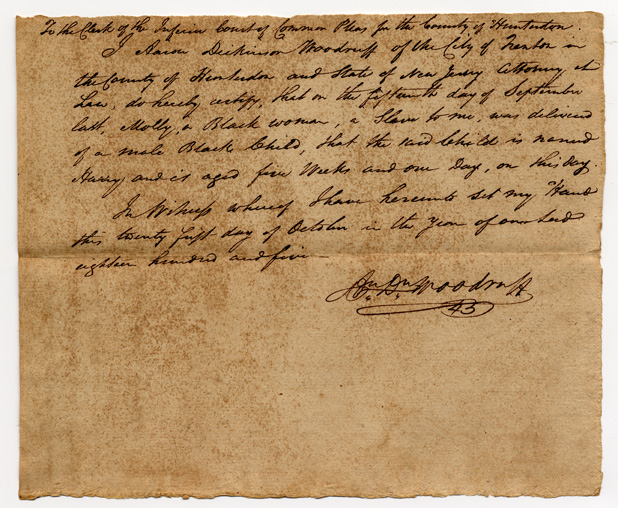 To the Clerk of the Inferior Court of Common Pleas for the County of Hunterdon.
I Aaron Dickinson Woodruff of the City of Trenton in
the County of Hunterdon and State of New Jersey Attorney at
Law, do hereby certify, that on the fifteenth day of September
last, Molly, a Black woman, a Slave to me, was delivered
of a male Black Child, that the said Child is named
Harry, and is aged five Weeks and one Day, on this day.
In Witness whereof I have hereunto set my Hand
this twenty first day of October in the Year of our Lord
eighteen hundred and five —
An. Dn. Woodruff
45